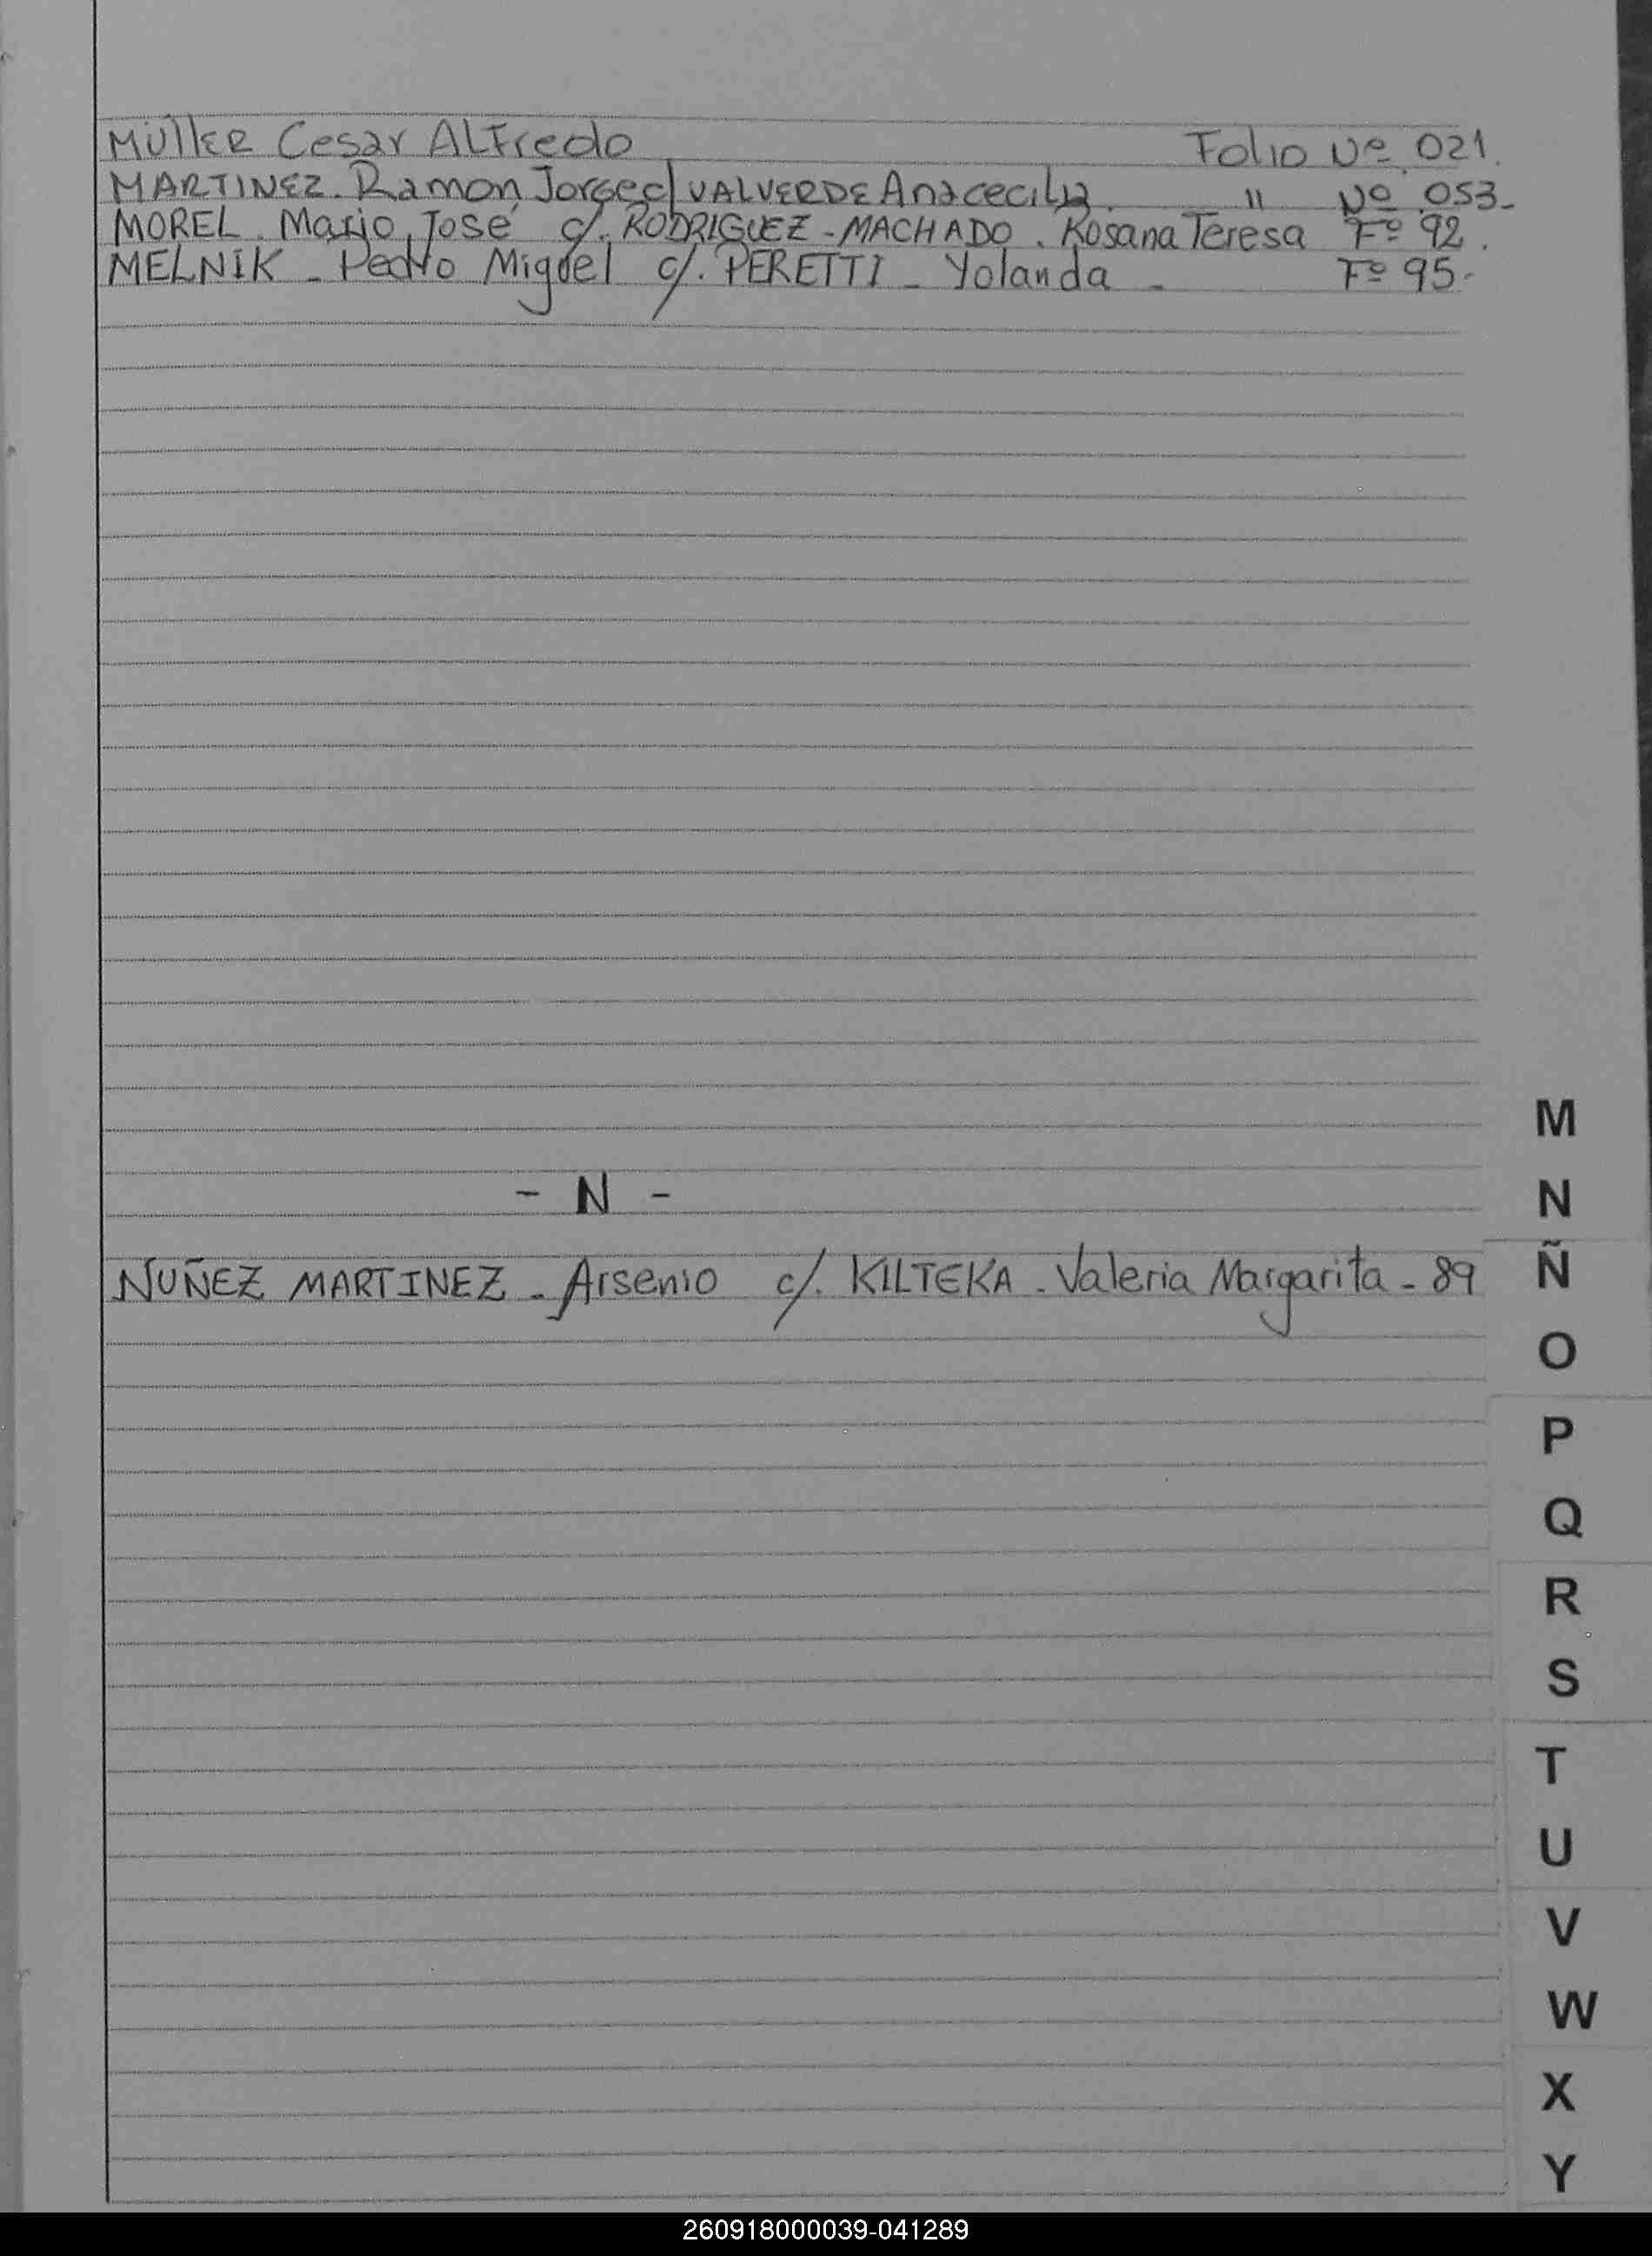 Müller Cesar Alfredo Folio Nº 021.
MARTINEZ. Ramon Jorge c/ VALVERDE Ana cecilia. " Nº 053-
MOREL. Mario José c/. RODRIGUEZ - MACHADO. Rosana Teresa Fº 92.
MELNIK - Pedro Miguel c/. PERETTI - Yolanda - Fº 95-
M
- N -
N
NUÑEZ MARTINEZ - Arsenio c/. KILTEKA - Valeria Margarita - 89
Ñ
O
P
Q
R
S
T
U
V
W
X
Y
260918000039-041289